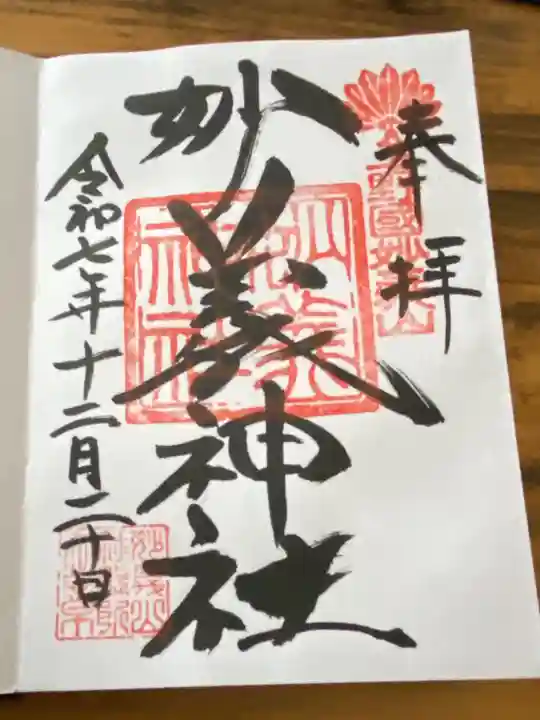 奉拝
妙義神社
令和七年十二月二十日